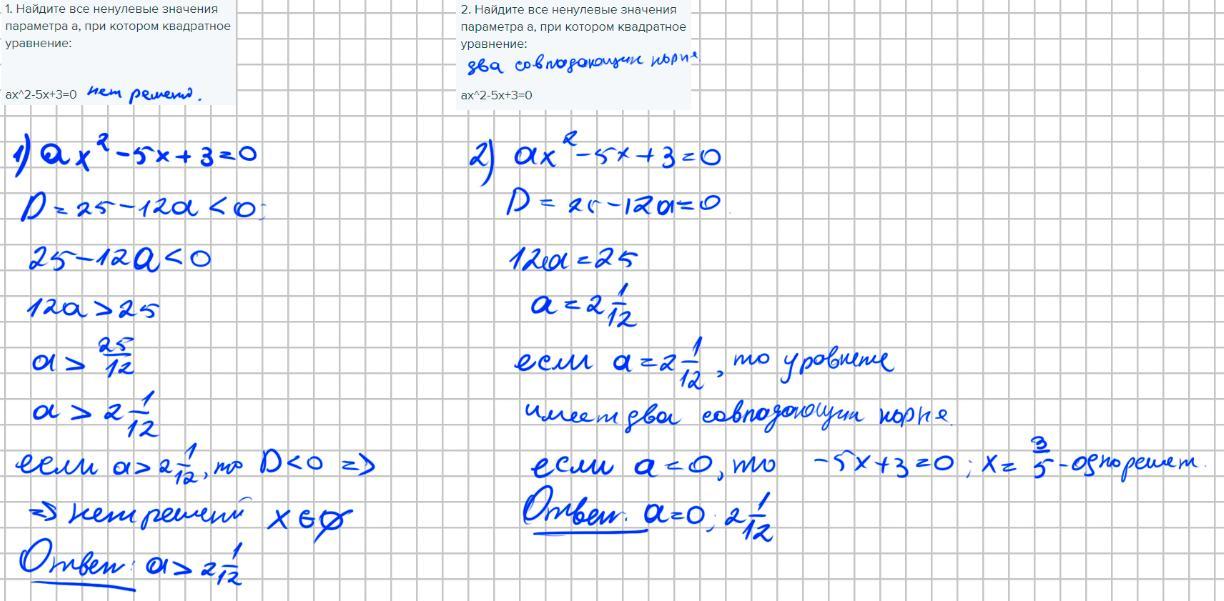 1. Найдите все ненулевые значения
параметра а, при котором квадратное
уравнение:
ax^2-5x+3=0 нет решений.
1) ax² - 5x + 3 = 0
D = 25 - 12a < 0;
25 - 12a < 0
12a > 25
a > 25/12
a > 2 1/12
если a > 2 1/12, то D < 0 =>
=> нет решений x ∈ ∅
Ответ: a > 2 1/12
2. Найдите все ненулевые значения
параметра а, при котором квадратное
уравнение:
два совпадающих корня.
ax^2-5x+3=0
2) ax² - 5x + 3 = 0
D = 25 - 12a = 0
12a = 25
a = 2 1/12
если a = 2 1/12, то уровнение
имеет два совпадающих корня
если a = 0, то -5x + 3 = 0; x = 3/5 - одно решет.
Ответ: a = 0; 2 1/12